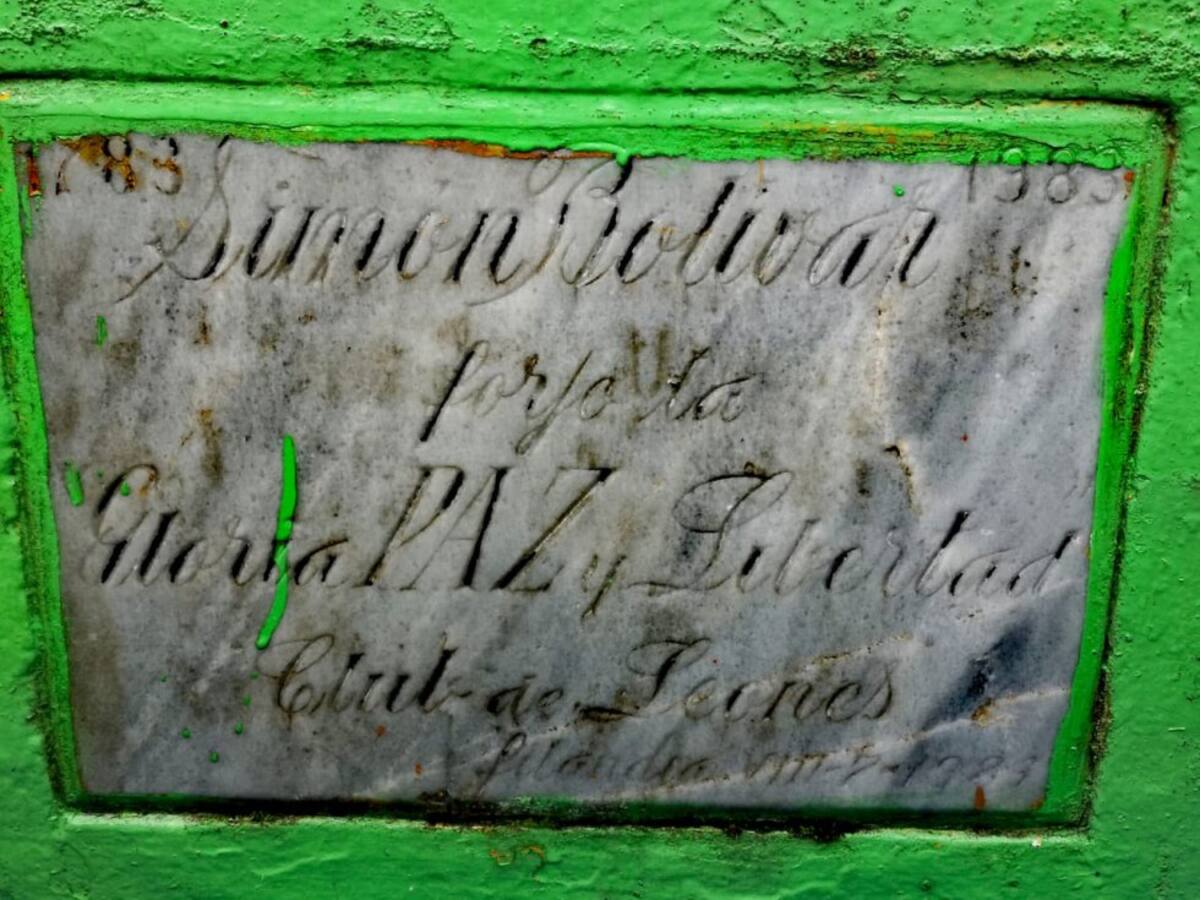 1783 1983
Simón Bolivar
forjo la
Gloria PAZ y Libertad
Club de Leones
filandia VIII-7-1983